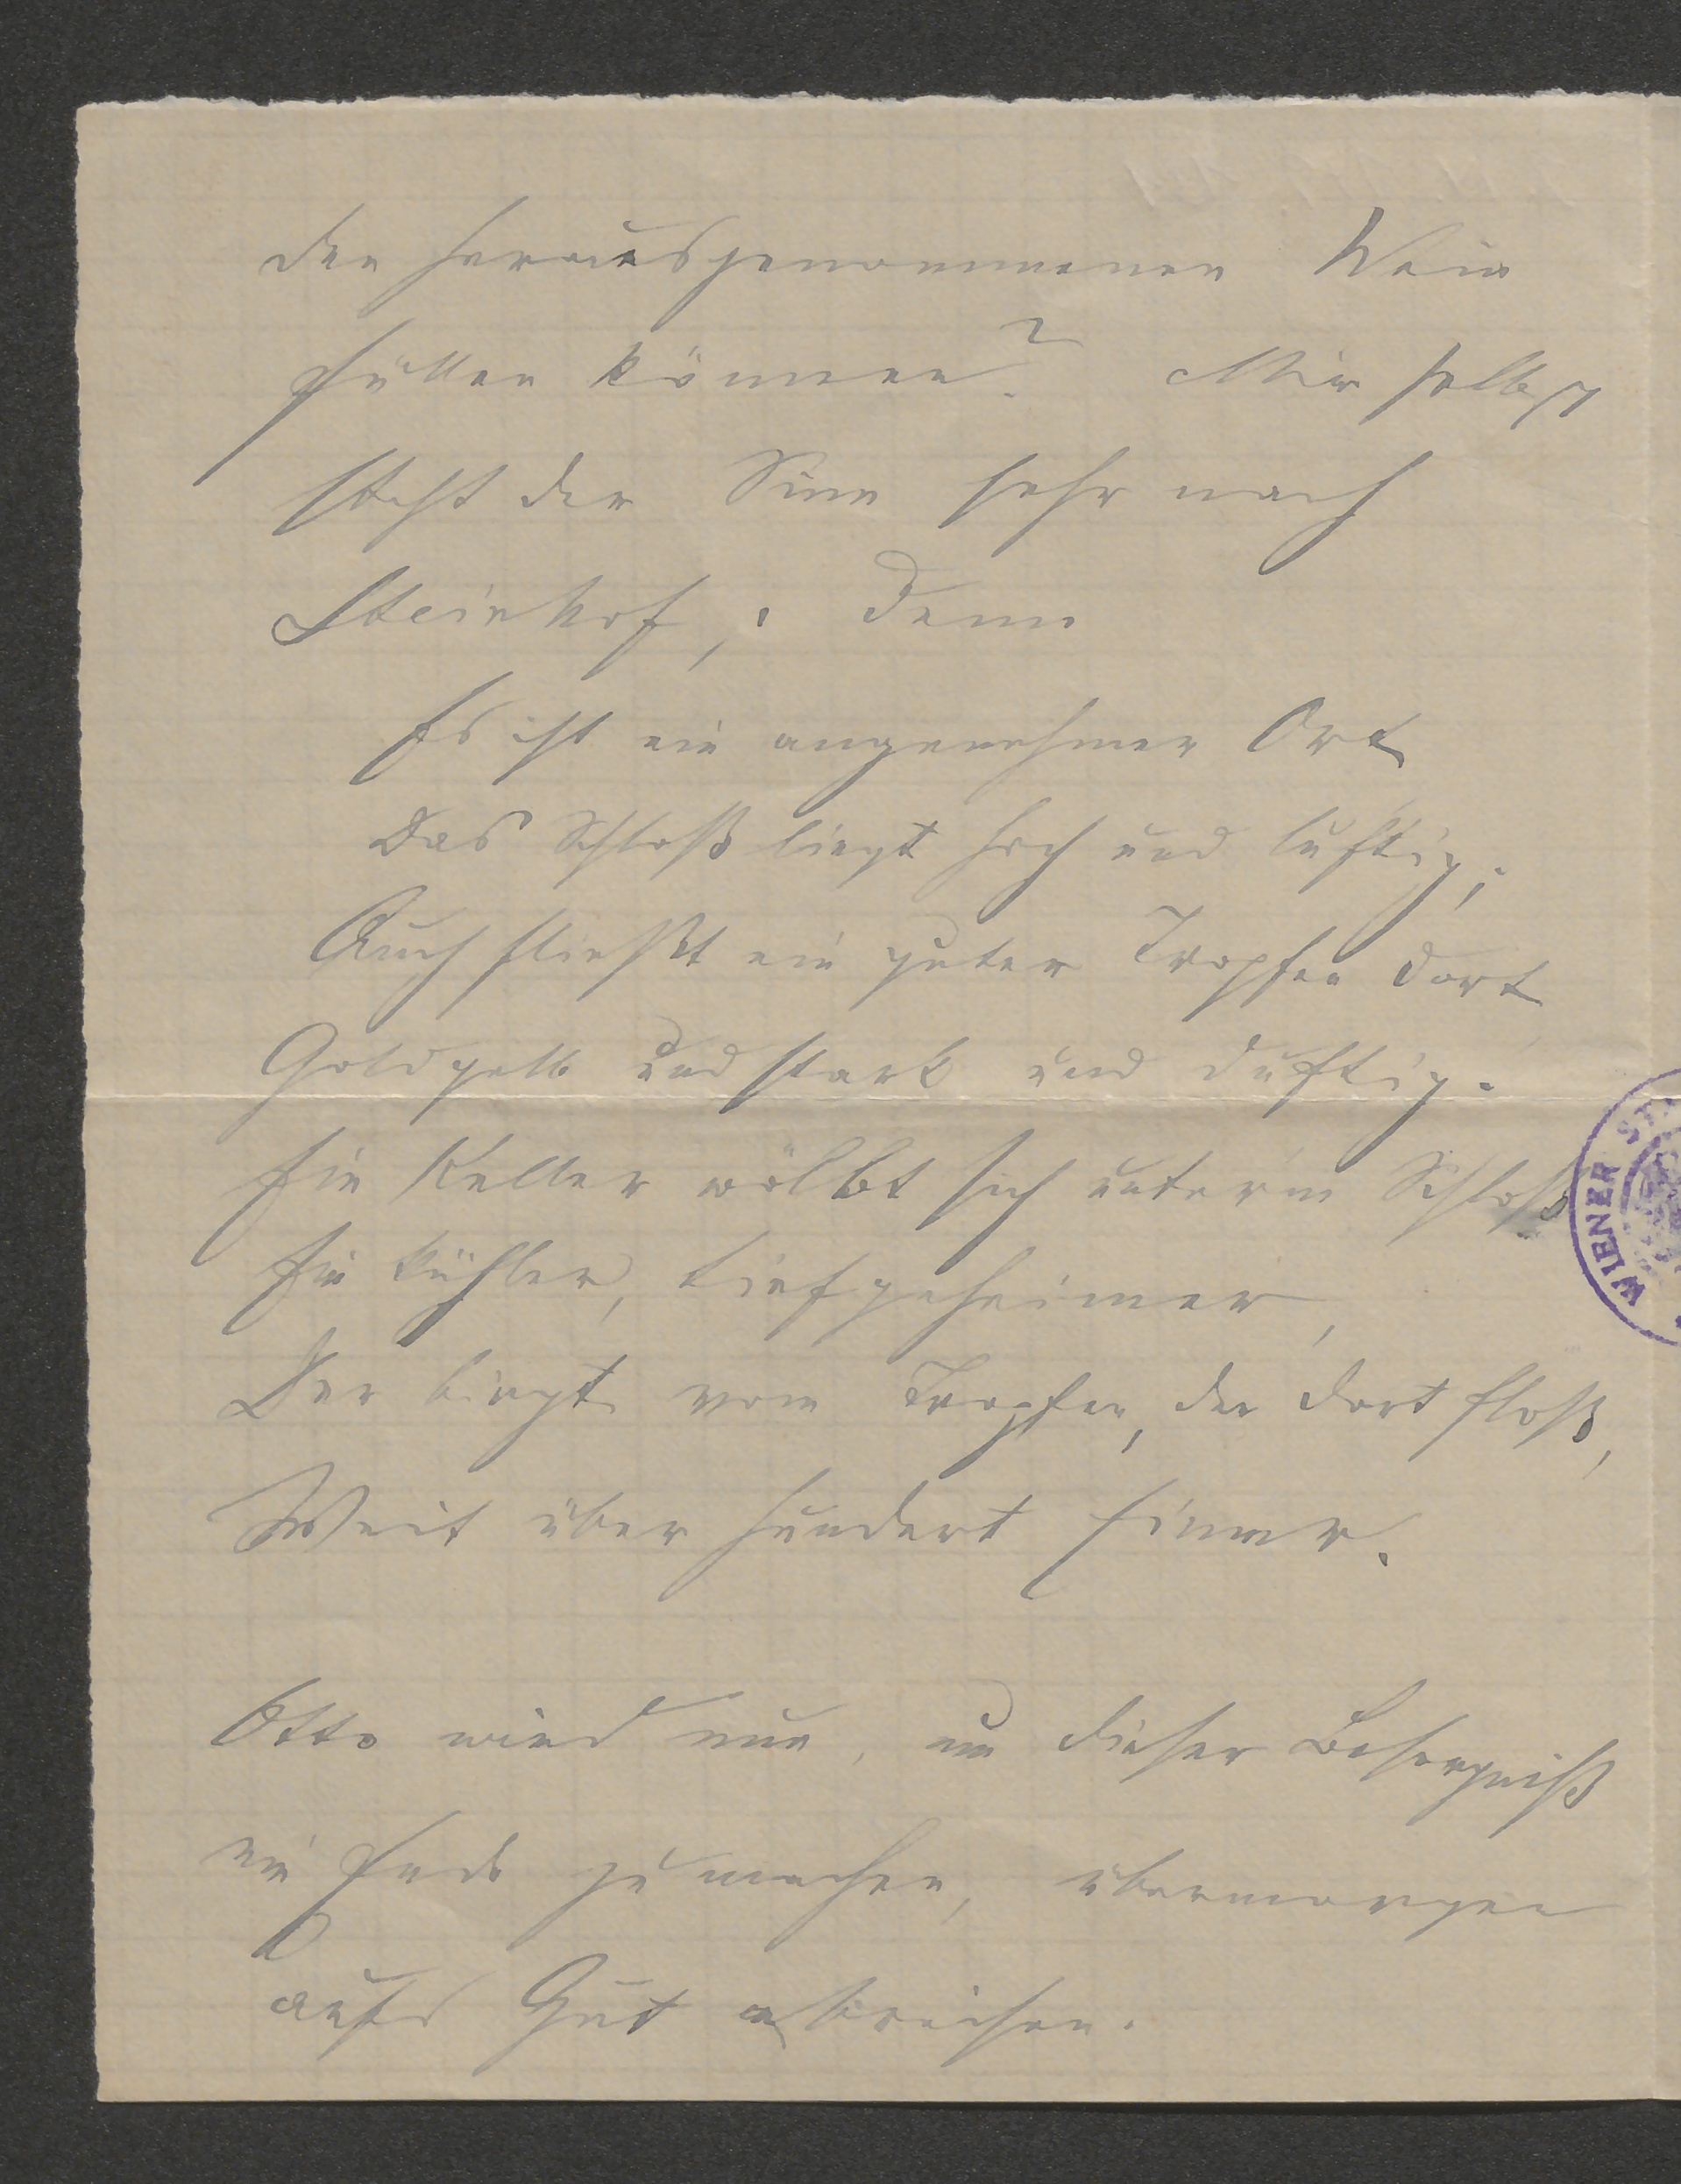 den herausgenommenen Wein
füllen können? Mir selbst
steht der Sinn sehr nach
Steinhof,; denn
Es ist ein angenehmer Ort
Das Schloß liegt hoch und luftig;
Auch fließt ein guter Tropfen dort
Goldgelb und stark und duftig.
Ein Keller wölbt sich unter'm Schloß
Ein kühler, tiefgeheimer,
Der birgt vom Tropfen, der dort floß,
Weit über hundert Eimer.
Otto wird nun, um dieser Besorgniß
ein Ende zu machen, übermorgen
aufs Gut abreisen.
WIENER ST